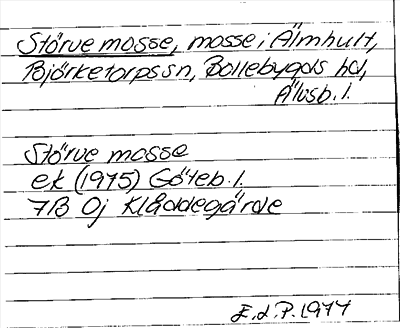 Störve mosse, mosse i Älmhult,
Björketorps sn, Bollebygds hd,
Älvsb. l.
Störve mosse
ek (1975) Göteb. l.
7B 0j Klåddegärde
E.d.P. 1977